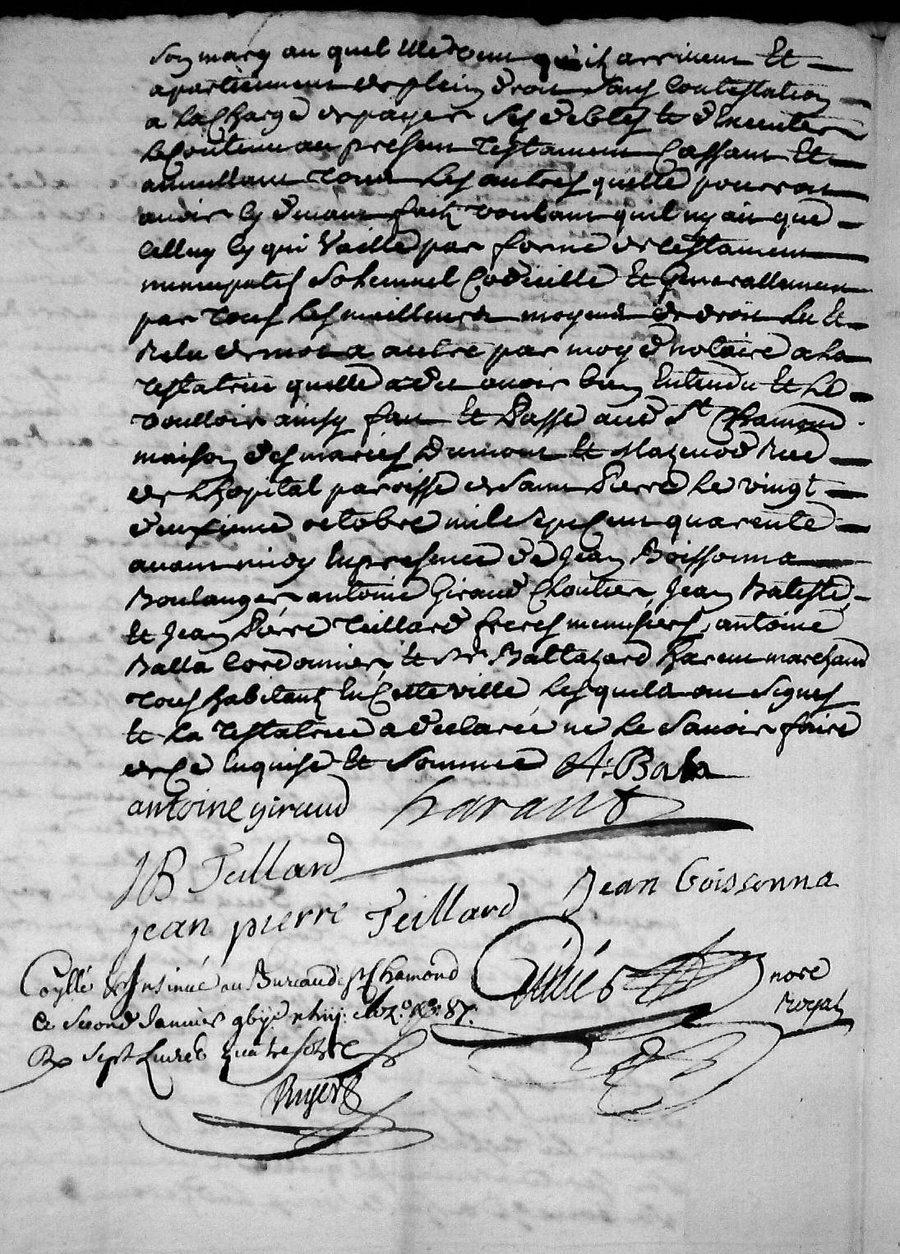 son mary au quel elle veut qu'ils arrivent Et
apartiennent de plein droit sans Contestation
a la Charge de payer ses debtes et d'Executer
le Contenu au present Testament Cassant Et
annullant tous les autres quelle pourroit
avoir cy devant faits voulant quil ny ait que
celluy cy qui vaille par forme de testament
nuncupatif solemnel Codicille Et Generallement
par tous les meilleurs moyens de droit lu Et
Relu de mot a autre par moy d notaire a la
Testatrice quelle a dit avoir bien Entendu Et le
voulloir ainsy fait Et Passé aud St Chamond
maison des mariés Dumont Et Rue
de Lhopital paroisse de Saint Pierre le vingt
deuxieme octobre mil sept Cent quarente
avant midy En presence de Jean Boissonna
Boulanger antoine Giraud Cloutier Jean Batiste,
Et Jean Pierre Teillard freres menuisiers, antoine
Balla Cordonnier, Et Sr Baltazard haraut marchand
Tous habitants En Cette ville lesquels ont signes
Et la Testatrice a declarée ne le scavoir faire
de Ce Enquise Et Sommée A: Bala
antoine giraud haraud
JB Teillard
Jean Boissonna
jean pierre Teillard
Coyllé & Insinué au Bureau de St Chamond
le second Janvier
Rx sept Livres quatre sols
nore
Royal